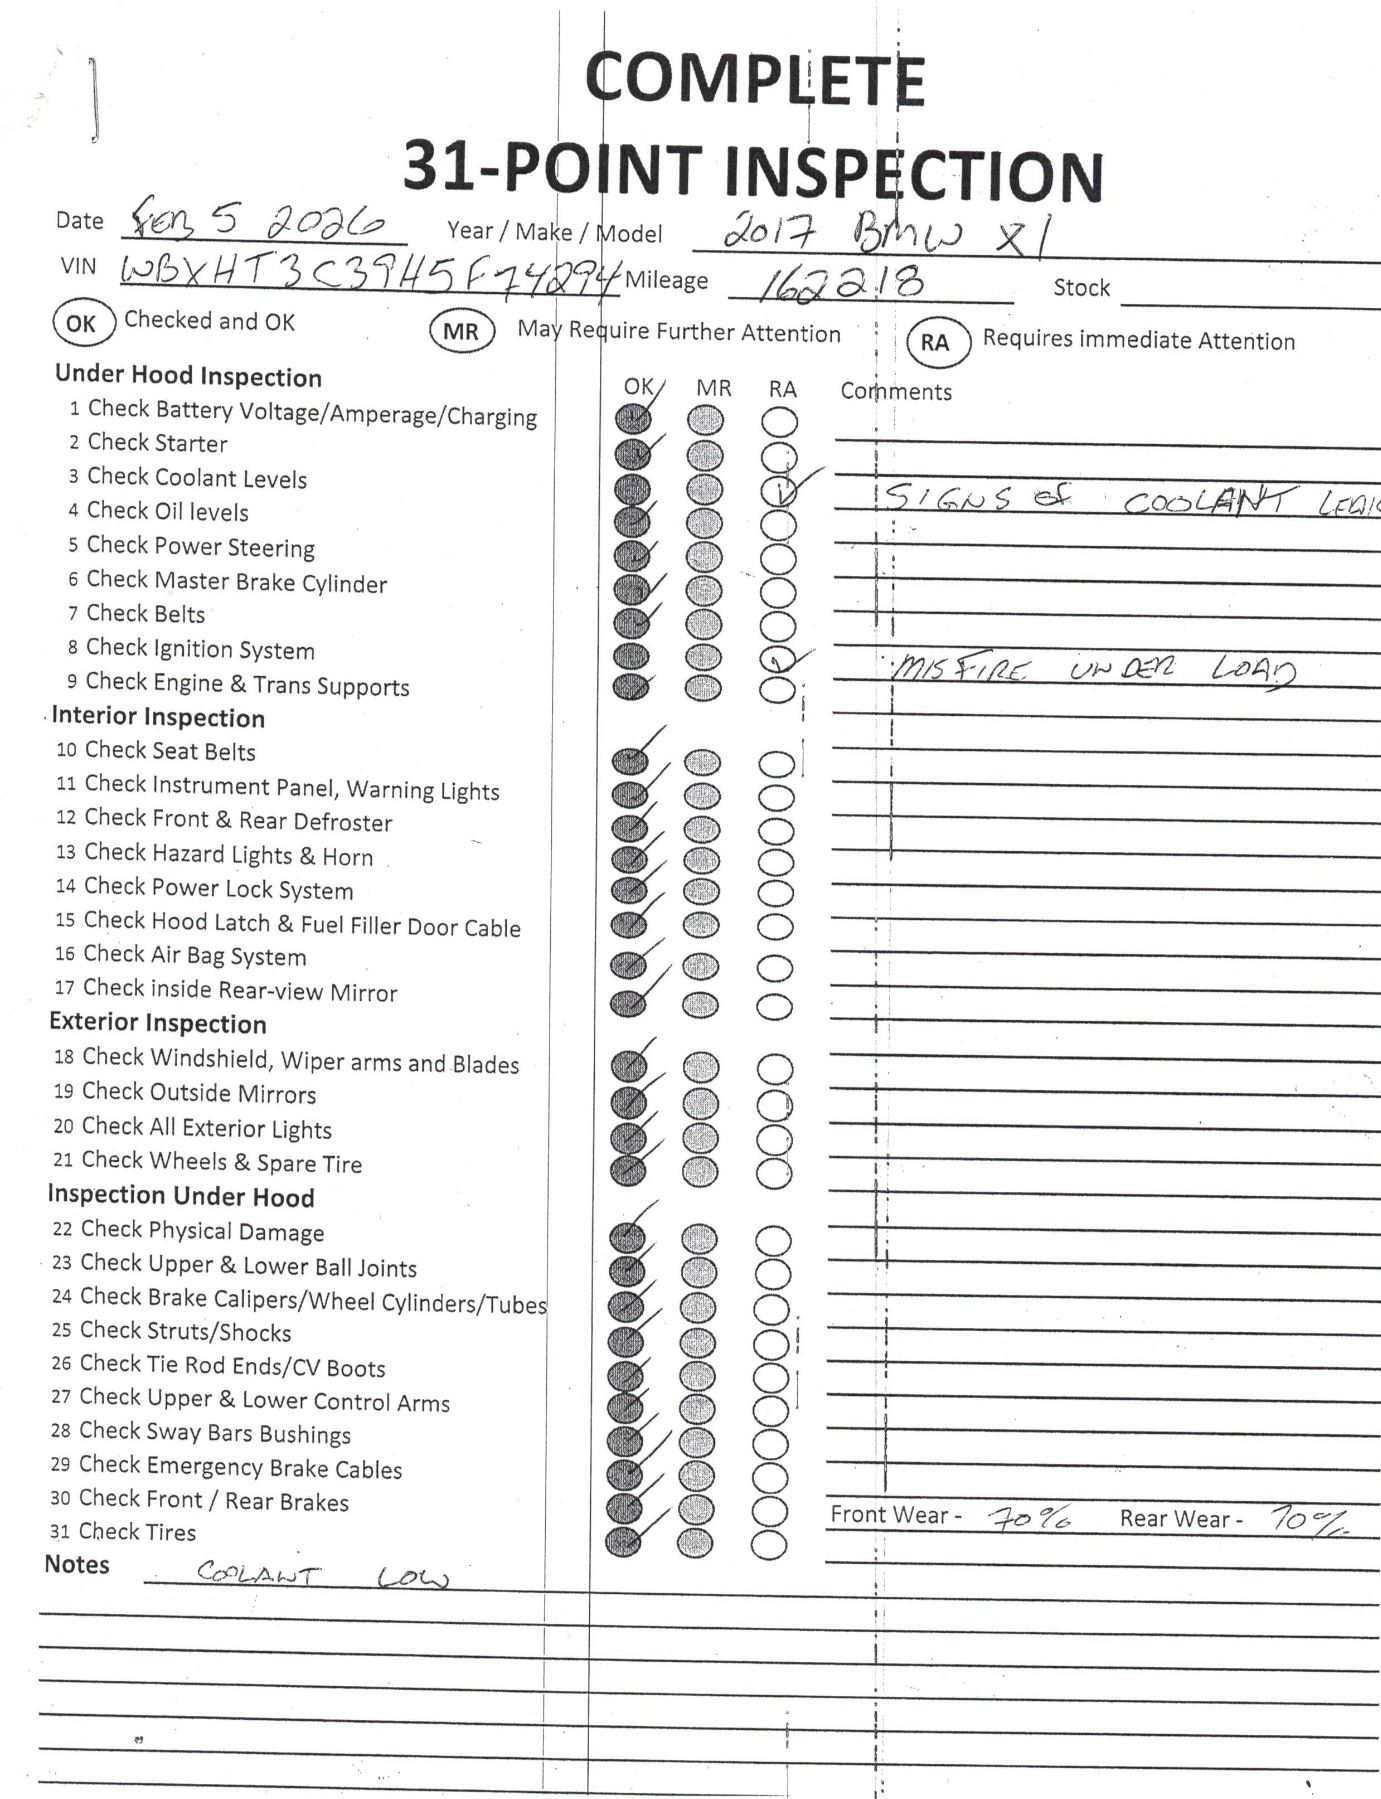 COMPLETE
31-POINT INSPECTION
Date Feb 5 2026 Year / Make / Model 2017 BMW X1
VIN WBXHT3C39H5F74294 Mileage 162218 Stock
OK Checked and OK MR May Require Further Attention RA Requires immediate Attention
Under Hood Inspection OK MR RA Comments
1 Check Battery Voltage/Amperage/Charging
2 Check Starter
3 Check Coolant Levels SIGNS of COOLANT LEAK
4 Check Oil levels
5 Check Power Steering
6 Check Master Brake Cylinder
7 Check Belts
8 Check Ignition System MISFIRE UNDER LOAD
9 Check Engine & Trans Supports
Interior Inspection
10 Check Seat Belts
11 Check Instrument Panel, Warning Lights
12 Check Front & Rear Defroster
13 Check Hazard Lights & Horn
14 Check Power Lock System
15 Check Hood Latch & Fuel Filler Door Cable
16 Check Air Bag System
17 Check inside Rear-view Mirror
Exterior Inspection
18 Check Windshield, Wiper arms and Blades
19 Check Outside Mirrors
20 Check All Exterior Lights
21 Check Wheels & Spare Tire
Inspection Under Hood
22 Check Physical Damage
23 Check Upper & Lower Ball Joints
24 Check Brake Calipers/Wheel Cylinders/Tubes
25 Check Struts/Shocks
26 Check Tie Rod Ends/CV Boots
27 Check Upper & Lower Control Arms
28 Check Sway Bars Bushings
29 Check Emergency Brake Cables
30 Check Front / Rear Brakes Front Wear - 70% Rear Wear - 70%
31 Check Tires
Notes COOLANT LOW